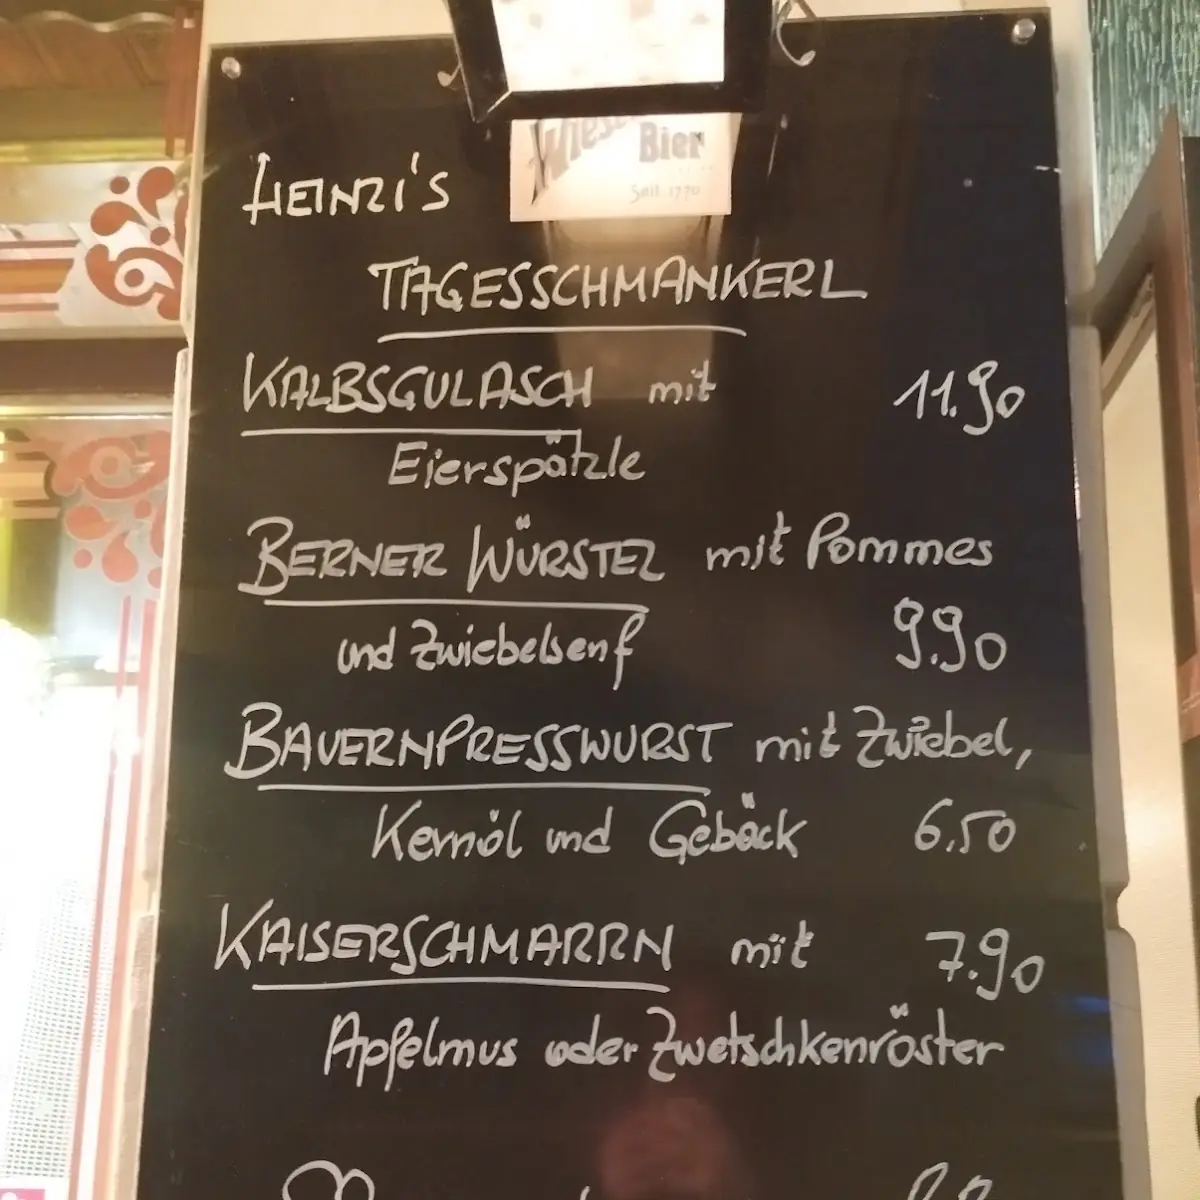 Bier
Seit 1770
HEINZI'S
TAGESSCHMANKERL
KALBSGULASCH mit 11.90
Eierspätzle
BERNER WÜRSTEL mit Pommes
und Zwiebelsenf 9.90
BAUERNPRESSWURST mit Zwiebel,
Kernöl und Gebäck 6.50
KAISERSCHMARRN mit 7.90
Apfelmus oder Zwetschkenröster